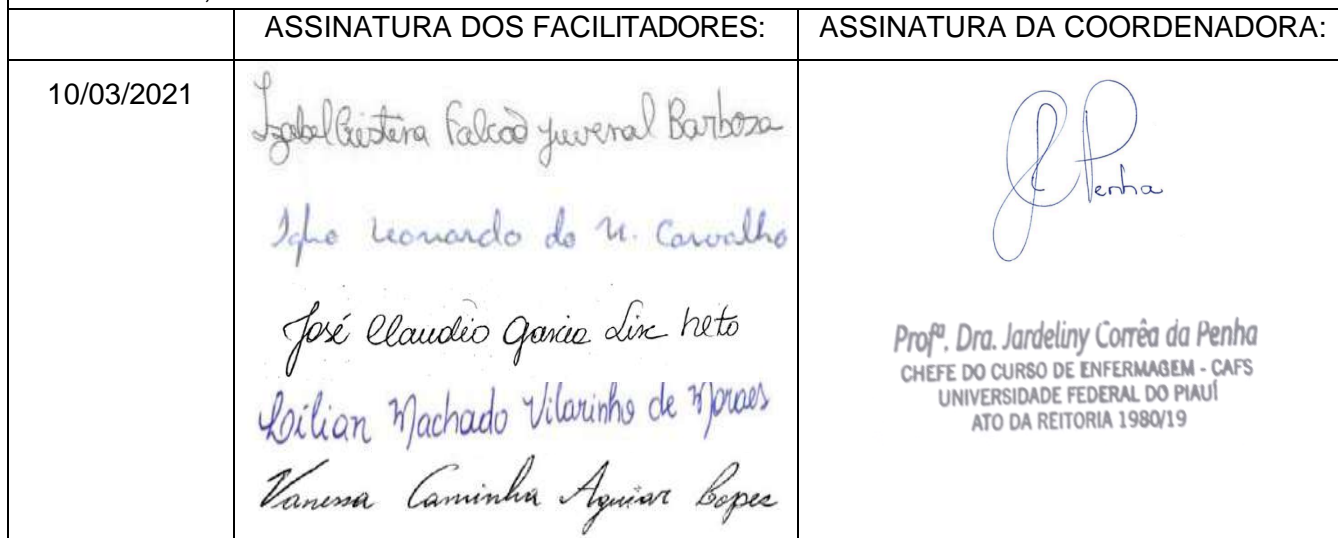 ASSINATURA DOS FACILITADORES: ASSINATURA DA COORDENADORA:
10/03/2021
Izabel Cristina Falcão Juvenal Barbosa
Leonardo do N. Carvalho
José Claudio Garcia Lira Neto
Lilian Machado Vilarinho de Moraes
Vanessa Caminha Aguiar Lopes
Penha
Profª. Dra. Jardeliny Corrêa da Penha
CHEFE DO CURSO DE ENFERMAGEM - CAFS
UNIVERSIDADE FEDERAL DO PIAUÍ
ATO DA REITORIA 1980/19